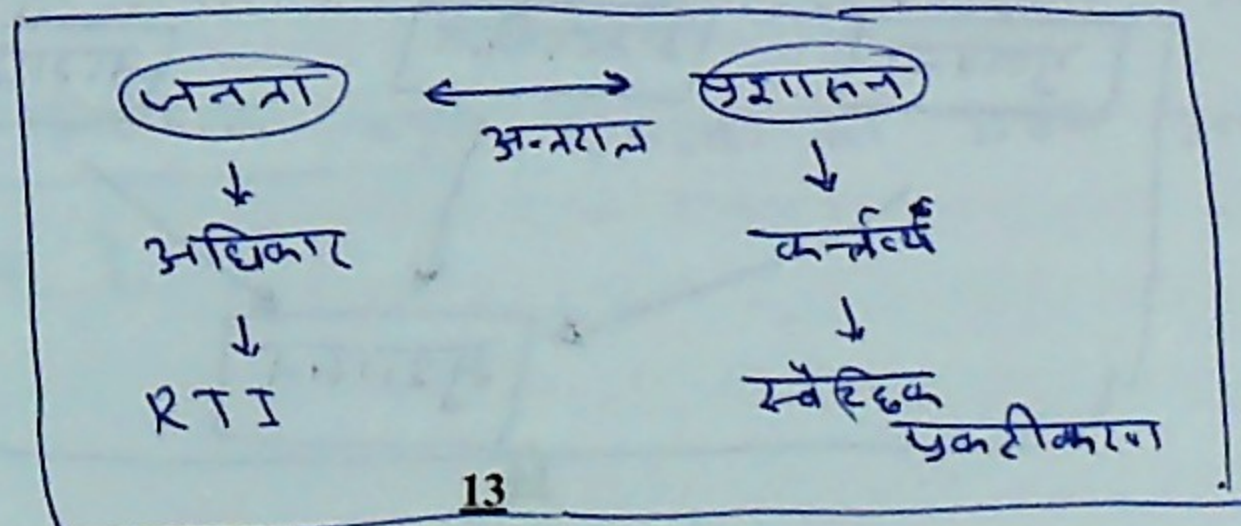 जनता ↔ प्रशासन
अन्तराल
↓ ↓
अधिकार कर्त्तव्य
↓ ↓
RTI स्वैच्छिक
प्रकटीकरण
13